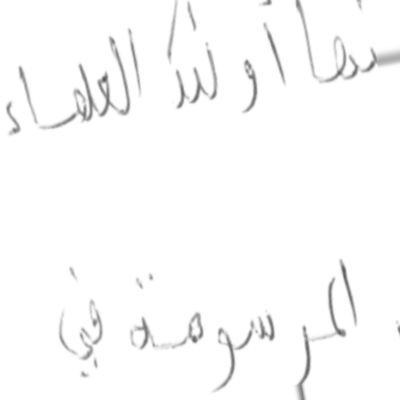 أولئك العلماء
المرسومة في